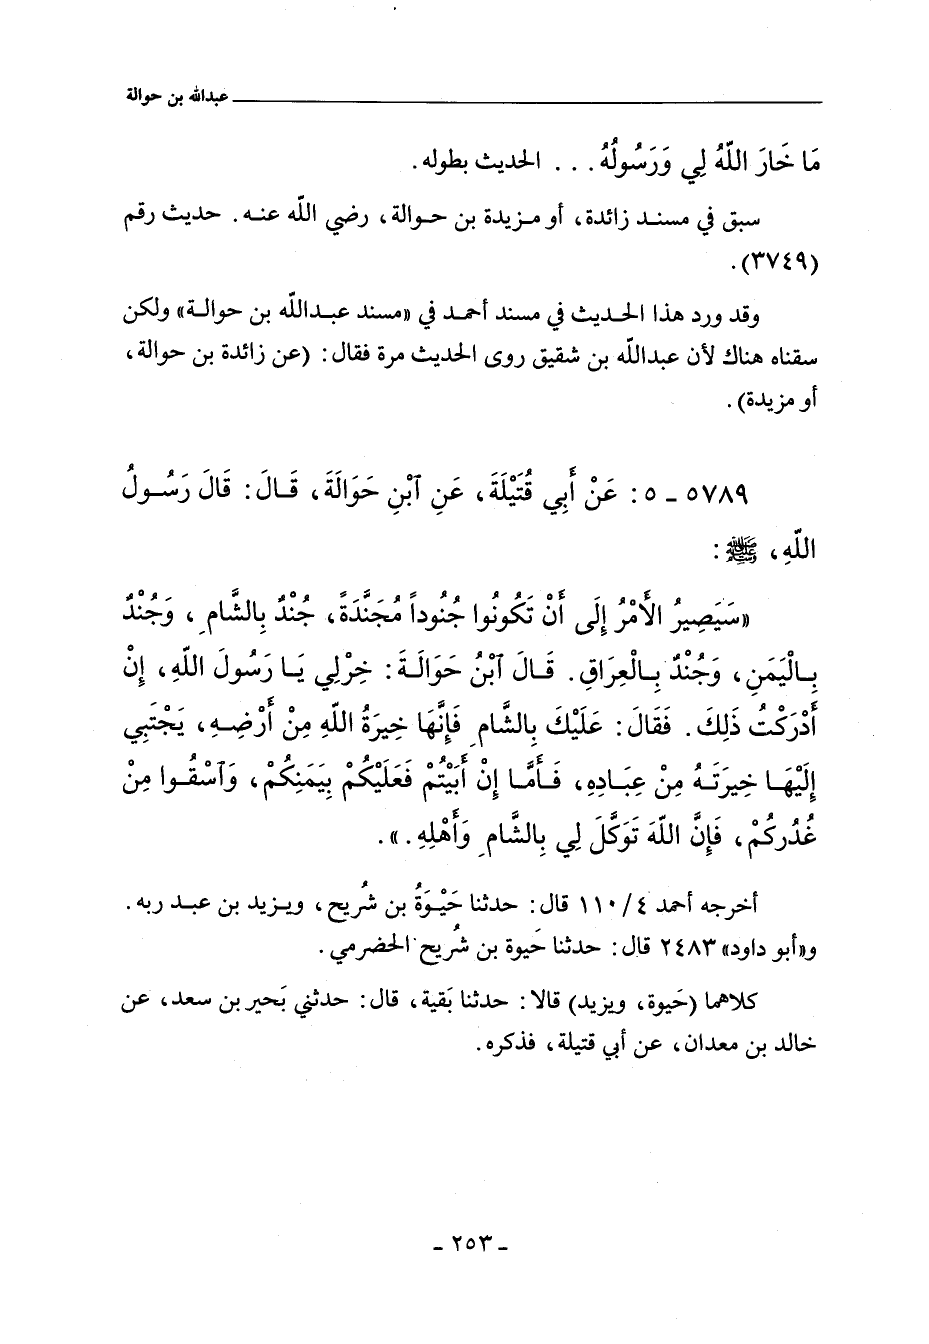 عبدالله بن حوالة
مَا خَارَ اللّٰهُ لِي وَرَسُولُهُ . . . الحديث بطوله .
سبق في مسند زائدة، أو مزيدة بن حوالة، رضي اللّٰه عنه. حديث رقم
(٣٧٤٩).
وقد ورد هذا الحديث في مسند أحمد في «مسند عبداللّٰه بن حوالة» ولكن
سقناه هناك لأن عبداللّٰه بن شقيق روى الحديث مرة فقال: (عن زائدة بن حوالة،
أو مزيدة).
٥٧٨٩ - ٥: عَنْ أَبِي قُتَيْلَةَ، عَنِ ٱبْنِ حَوَالَةَ، قَالَ: قَالَ رَسُولُ
اللّٰهِ، ﷺ:
«سَيَصِيرُ الأَمْرُ إِلَى أَنْ تَكُونُوا جُنُوداً مُجَنَّدَةً، جُنْدٌ بِالشَّامِ، وَجُنْدٌ
بِالْيَمَنِ، وَجُنْدٌ بِالْعِرَاقِ. قَالَ ٱبْنُ حَوَالَةَ: خِرْلِي يَا رَسُولَ اللّٰهِ، إِنْ
أَدْرَكْتُ ذٰلِكَ. فَقَالَ: عَلَيْكَ بِالشَّامِ فَإِنَّهَا خِيرَةُ اللّٰهِ مِنْ أَرْضِهِ، يَجْتَبِي
إِلَيْهَا خِيرَتَهُ مِنْ عِبَادِهِ، فَأَمَّا إِنْ أَبَيْتُمْ فَعَلَيْكُمْ بِيَمَنِكُمْ، وَٱسْقُوا مِنْ
غُدُرِكُمْ، فَإِنَّ اللّٰهَ تَوَكَّلَ لِي بِالشَّامِ وَأَهْلِهِ.».
أخرجه أحمد ٤/ ١١٠ قال: حدثنا حَيْوَةُ بن شُريح، ويزيد بن عبد ربه.
و«أبو داود» ٢٤٨٣ قال: حدثنا حَيوة بن شُريح الحضرمي.
كلاهما (حَيوة، ويزيد) قالا: حدثنا بَقية، قال: حدثني بَحير بن سعد، عن
خالد بن معدان، عن أبي قتيلة، فذكره.
- ٢٥٣ -